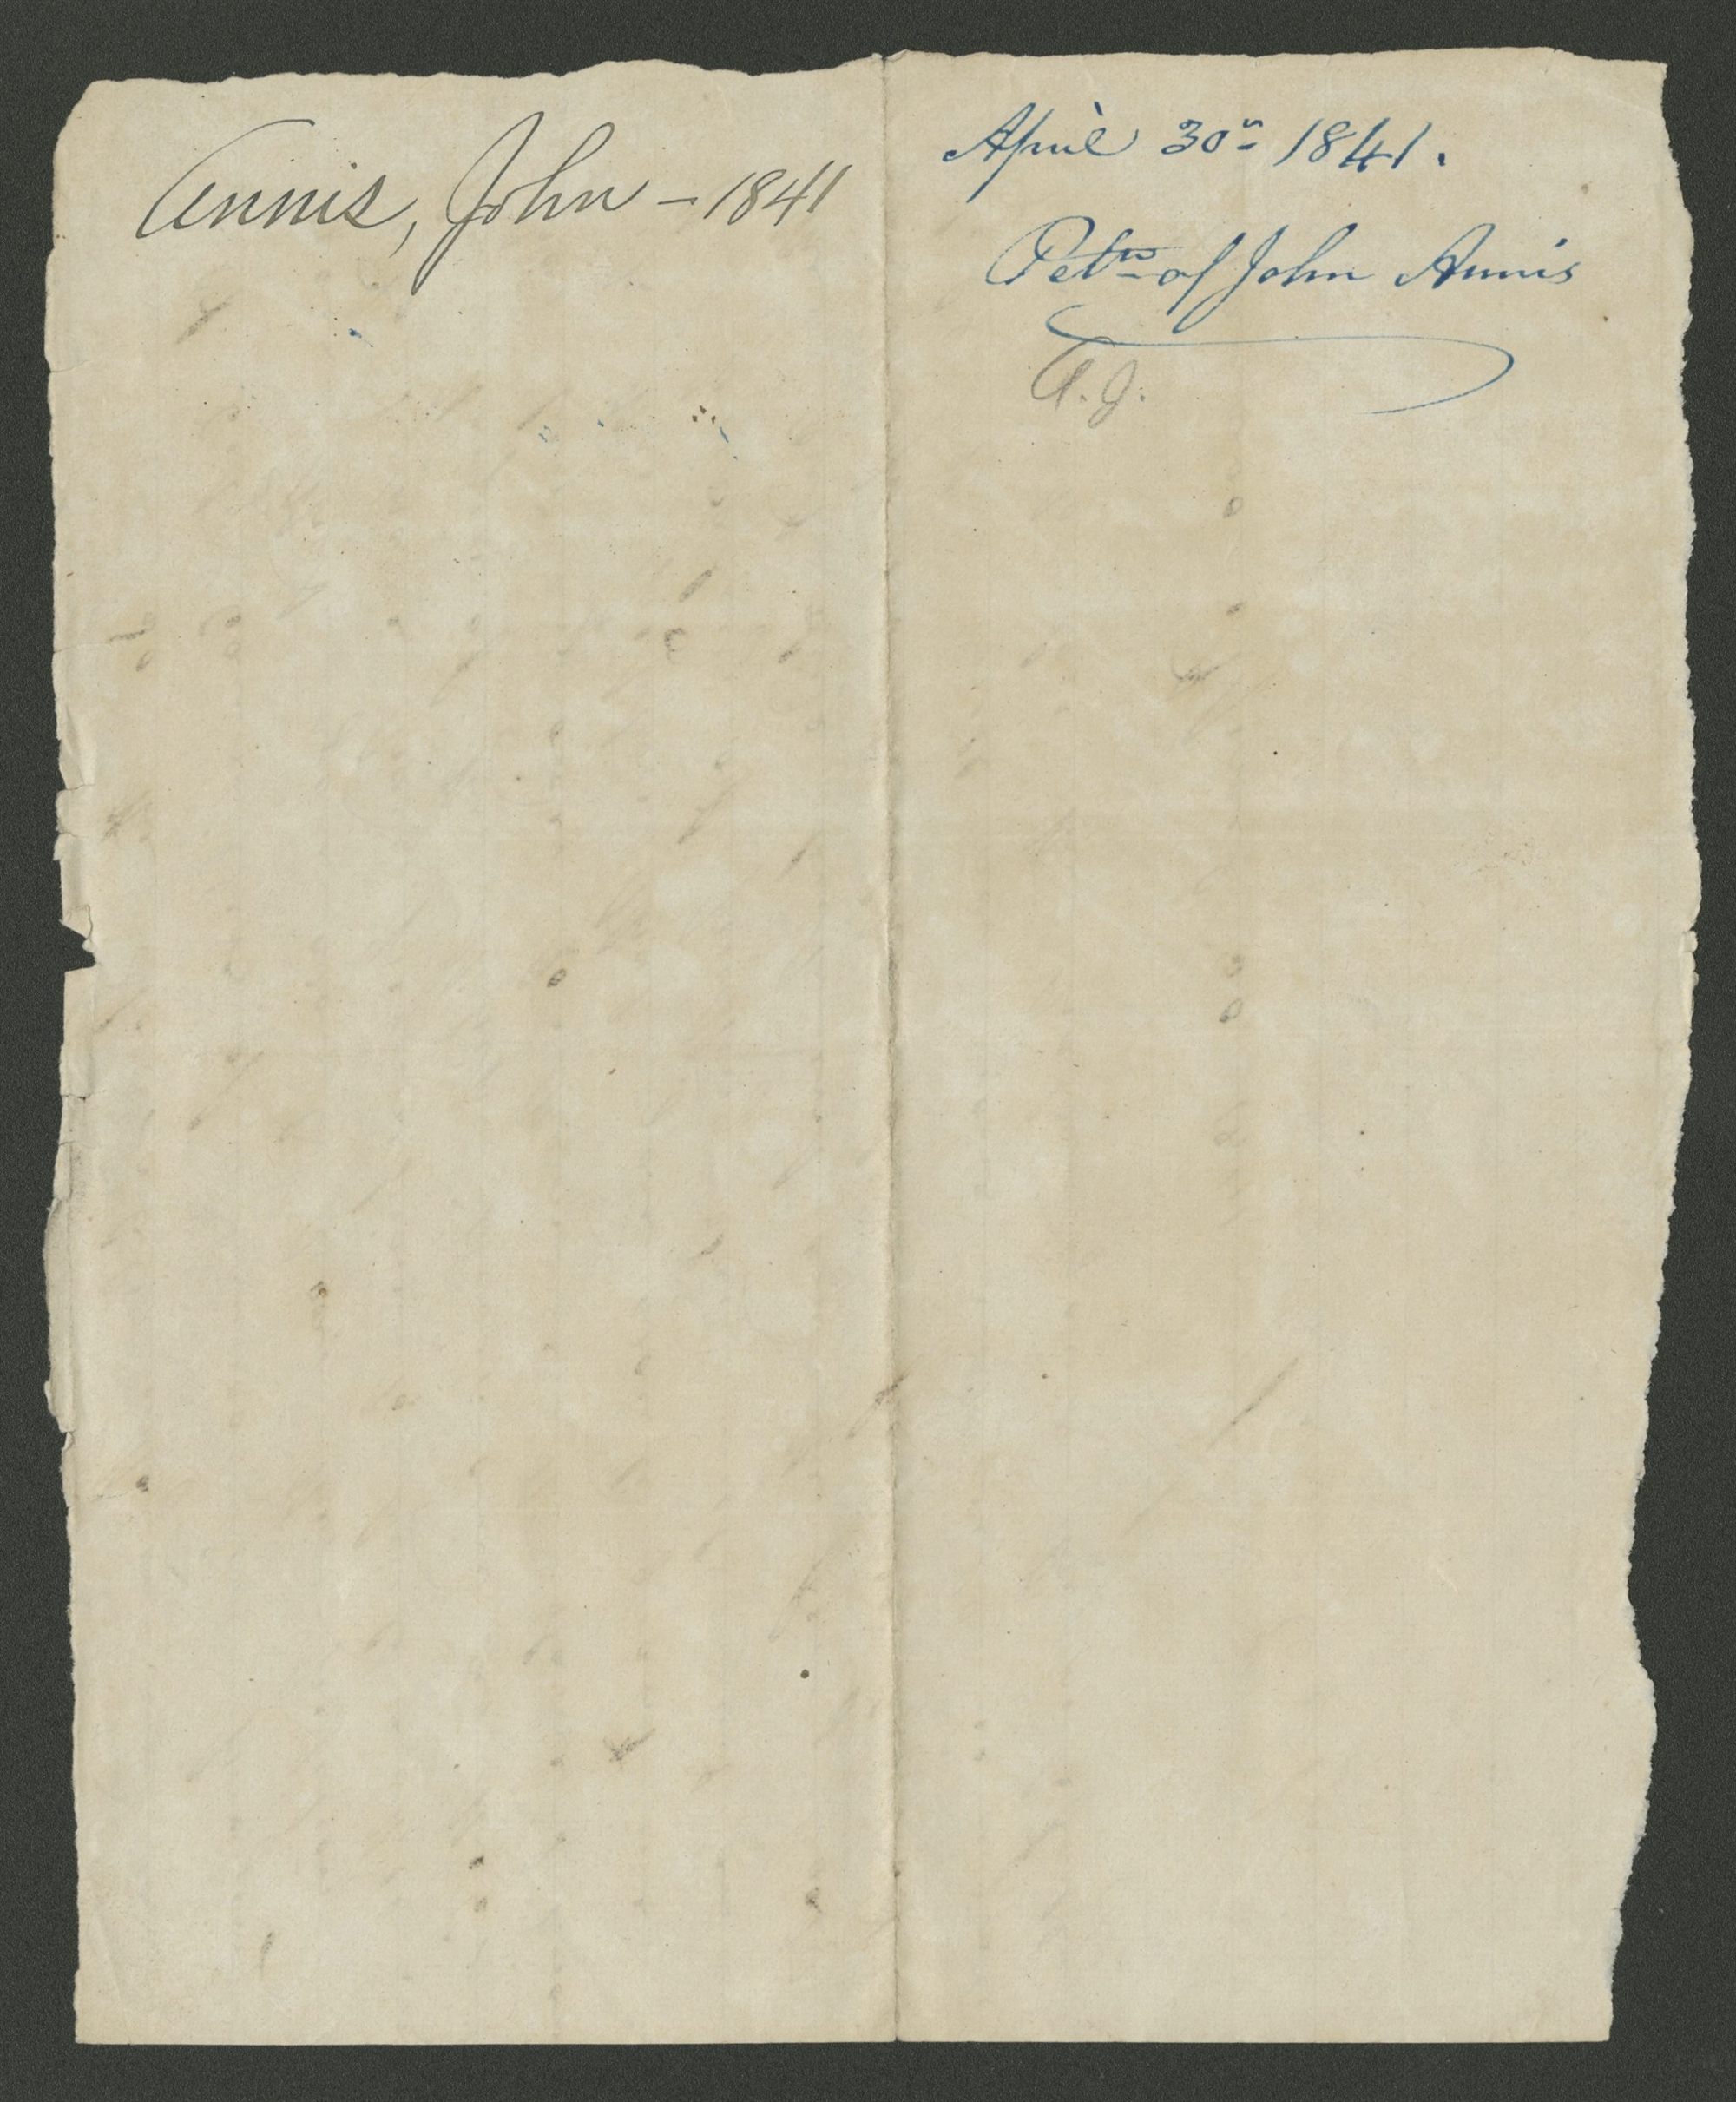 Annis, John - 1841
April 30th 1841.
Petn of John Annis
A. J.